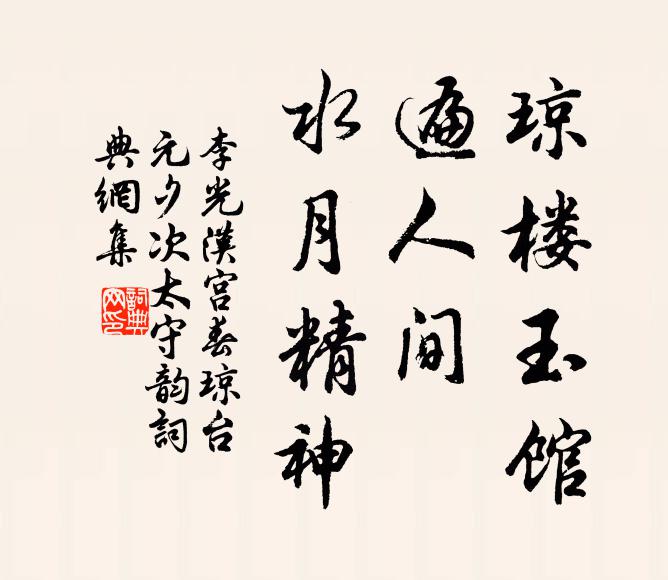 琼楼玉馆
遍人间
水月精神
李光漢宫春琼台
元夕次太守韵詞
典網集
詞典
网印